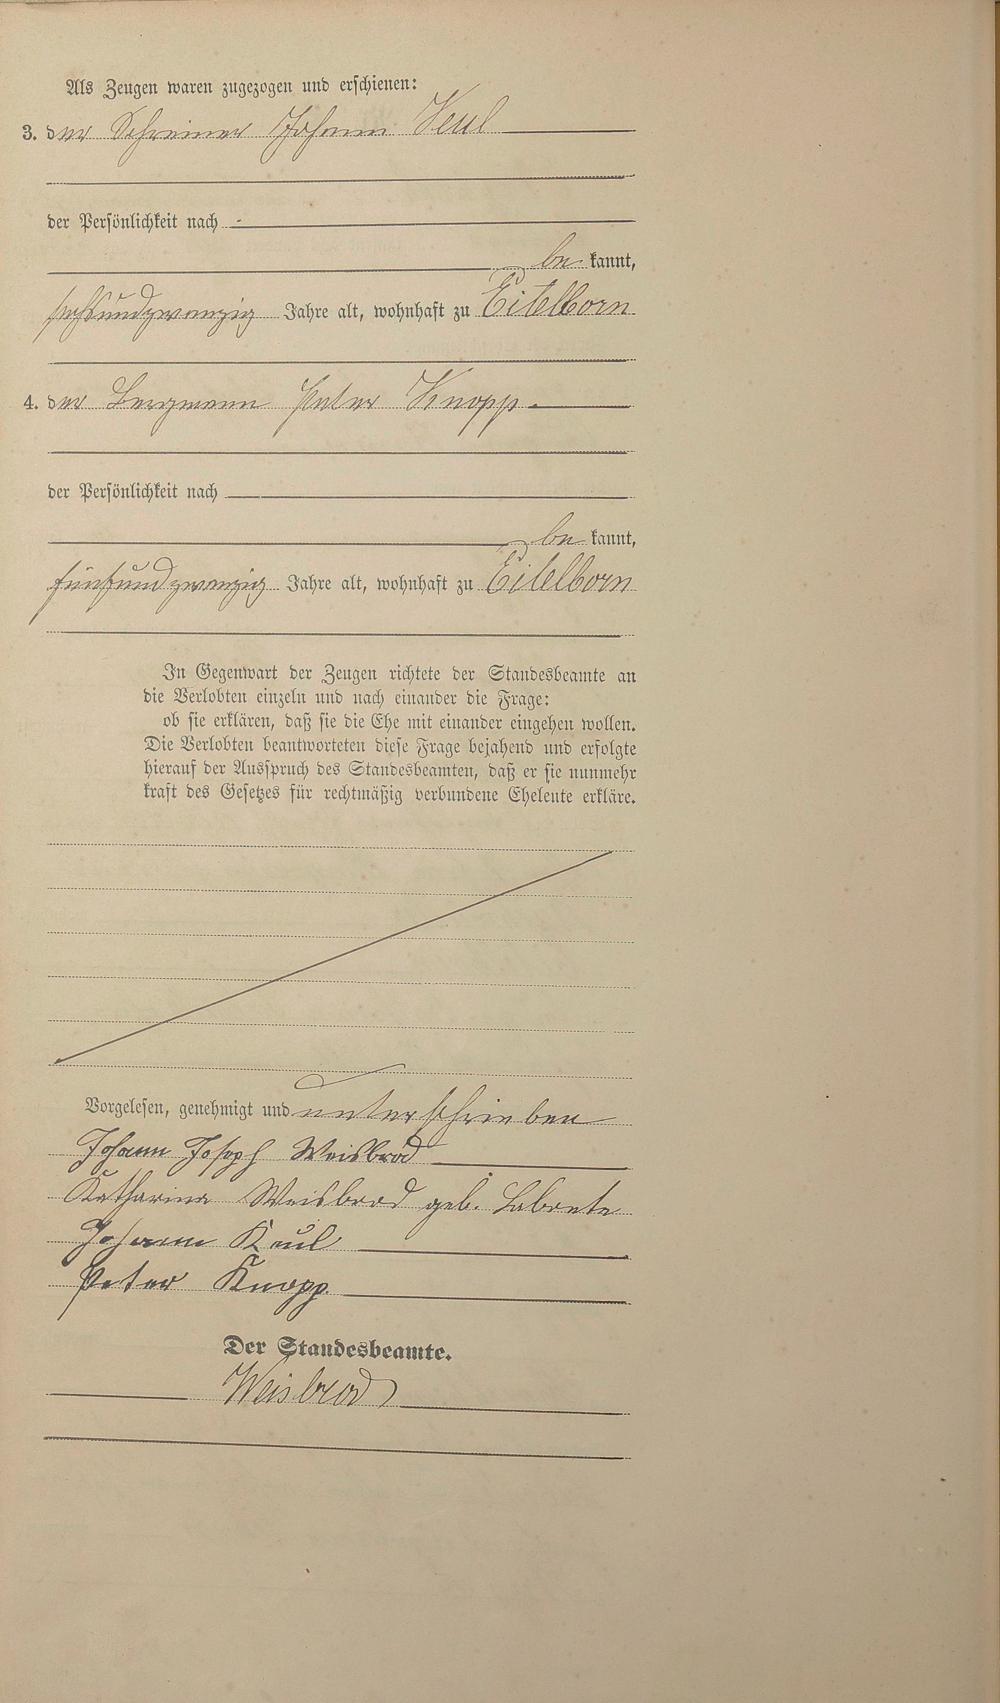 Als Zeugen waren zugezogen und erschienen:
3. der Schreiner Johann Keul
der Persönlichkeit nach -
be kannt,
sechsundzwanzig Jahre alt, wohnhaft zu Eitelborn
4. der Bergmann Peter Knopp
der Persönlichkeit nach
be kannt,
fünfundzwanzig Jahre alt, wohnhaft zu Eitelborn
In Gegenwart der Zeugen richtete der Standesbeamte an
die Verlobten einzeln und nach einander die Frage:
ob sie erklären, daß sie die Ehe mit einander eingehen wollen.
Die Verlobten beantworteten diese Frage bejahend und erfolgte
hierauf der Ausspruch des Standesbeamten, daß er sie nunmehr
kraft des Gesetzes für rechtmäßig verbundene Eheleute erkläre.
Vorgelesen, genehmigt und unterschrieben
Johann Joseph Weisbrod
Katharina Weisbrod geb. Labonte
Johann Keul
Peter Knopp
Der Standesbeamte.
Weisbrod